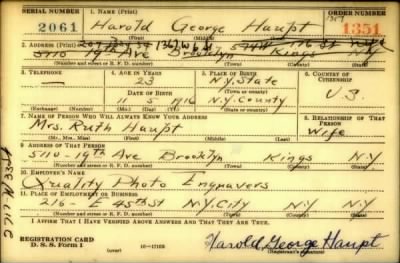 SERIAL NUMBER
2061
1. NAME (Print)
Harold George Haupt
(First) (Middle) (Last)
ORDER NUMBER
1351
2. ADDRESS (Print)
5110 19th Ave Brooklyn Kings N.Y.
(Number and street or R. F. D. number) (Town) (County) (State)
3. TELEPHONE
—
(Exchange) (Number)
4. AGE IN YEARS
23
DATE OF BIRTH
11 5 1916
(Mo.) (Day) (Yr.)
5. PLACE OF BIRTH
N.Y. State
N.Y. County
(State or country)
6. COUNTRY OF CITIZENSHIP
U S.
7. NAME OF PERSON WHO WILL ALWAYS KNOW YOUR ADDRESS
Mrs. Ruth Haupt
(Mr., Mrs., Miss) (First) (Middle) (Last)
8. RELATIONSHIP OF THAT PERSON
Wife
9. ADDRESS OF THAT PERSON
5110 - 19th Ave Brooklyn Kings N.Y
(Number and street or R. F. D. number) (Town) (County) (State)
10. EMPLOYER'S NAME
Quality Photo Engravers
11. PLACE OF EMPLOYMENT OR BUSINESS
216 - E 45th St N.Y. City N.Y. N.Y
(Number and street or R. F. D. number) (Town) (County) (State)
I AFFIRM THAT I HAVE VERIFIED ABOVE ANSWERS AND THAT THEY ARE TRUE.
REGISTRATION CARD
D. S. S. Form 1
(over)
16—17105
Harold George Haupt
(Registrant's signature)